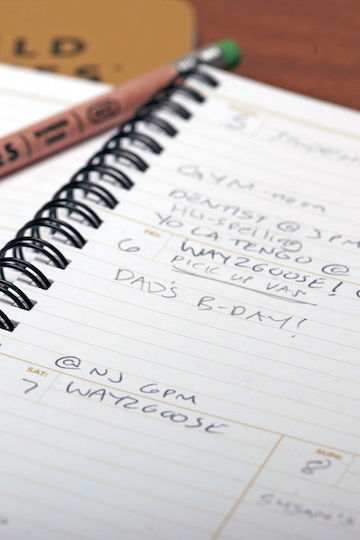 LD
ES
5
GYM - noon
DENTIST @ 3PM
Hu-spelling
YO LA TENGO @
FRI:
6 WAYZGOOSE!
PICK UP VAN
DAD'S B-DAY!
@ NJ 6PM
SAT:
7 WAYZGOOSE
SUN:
8
SUSAN'S